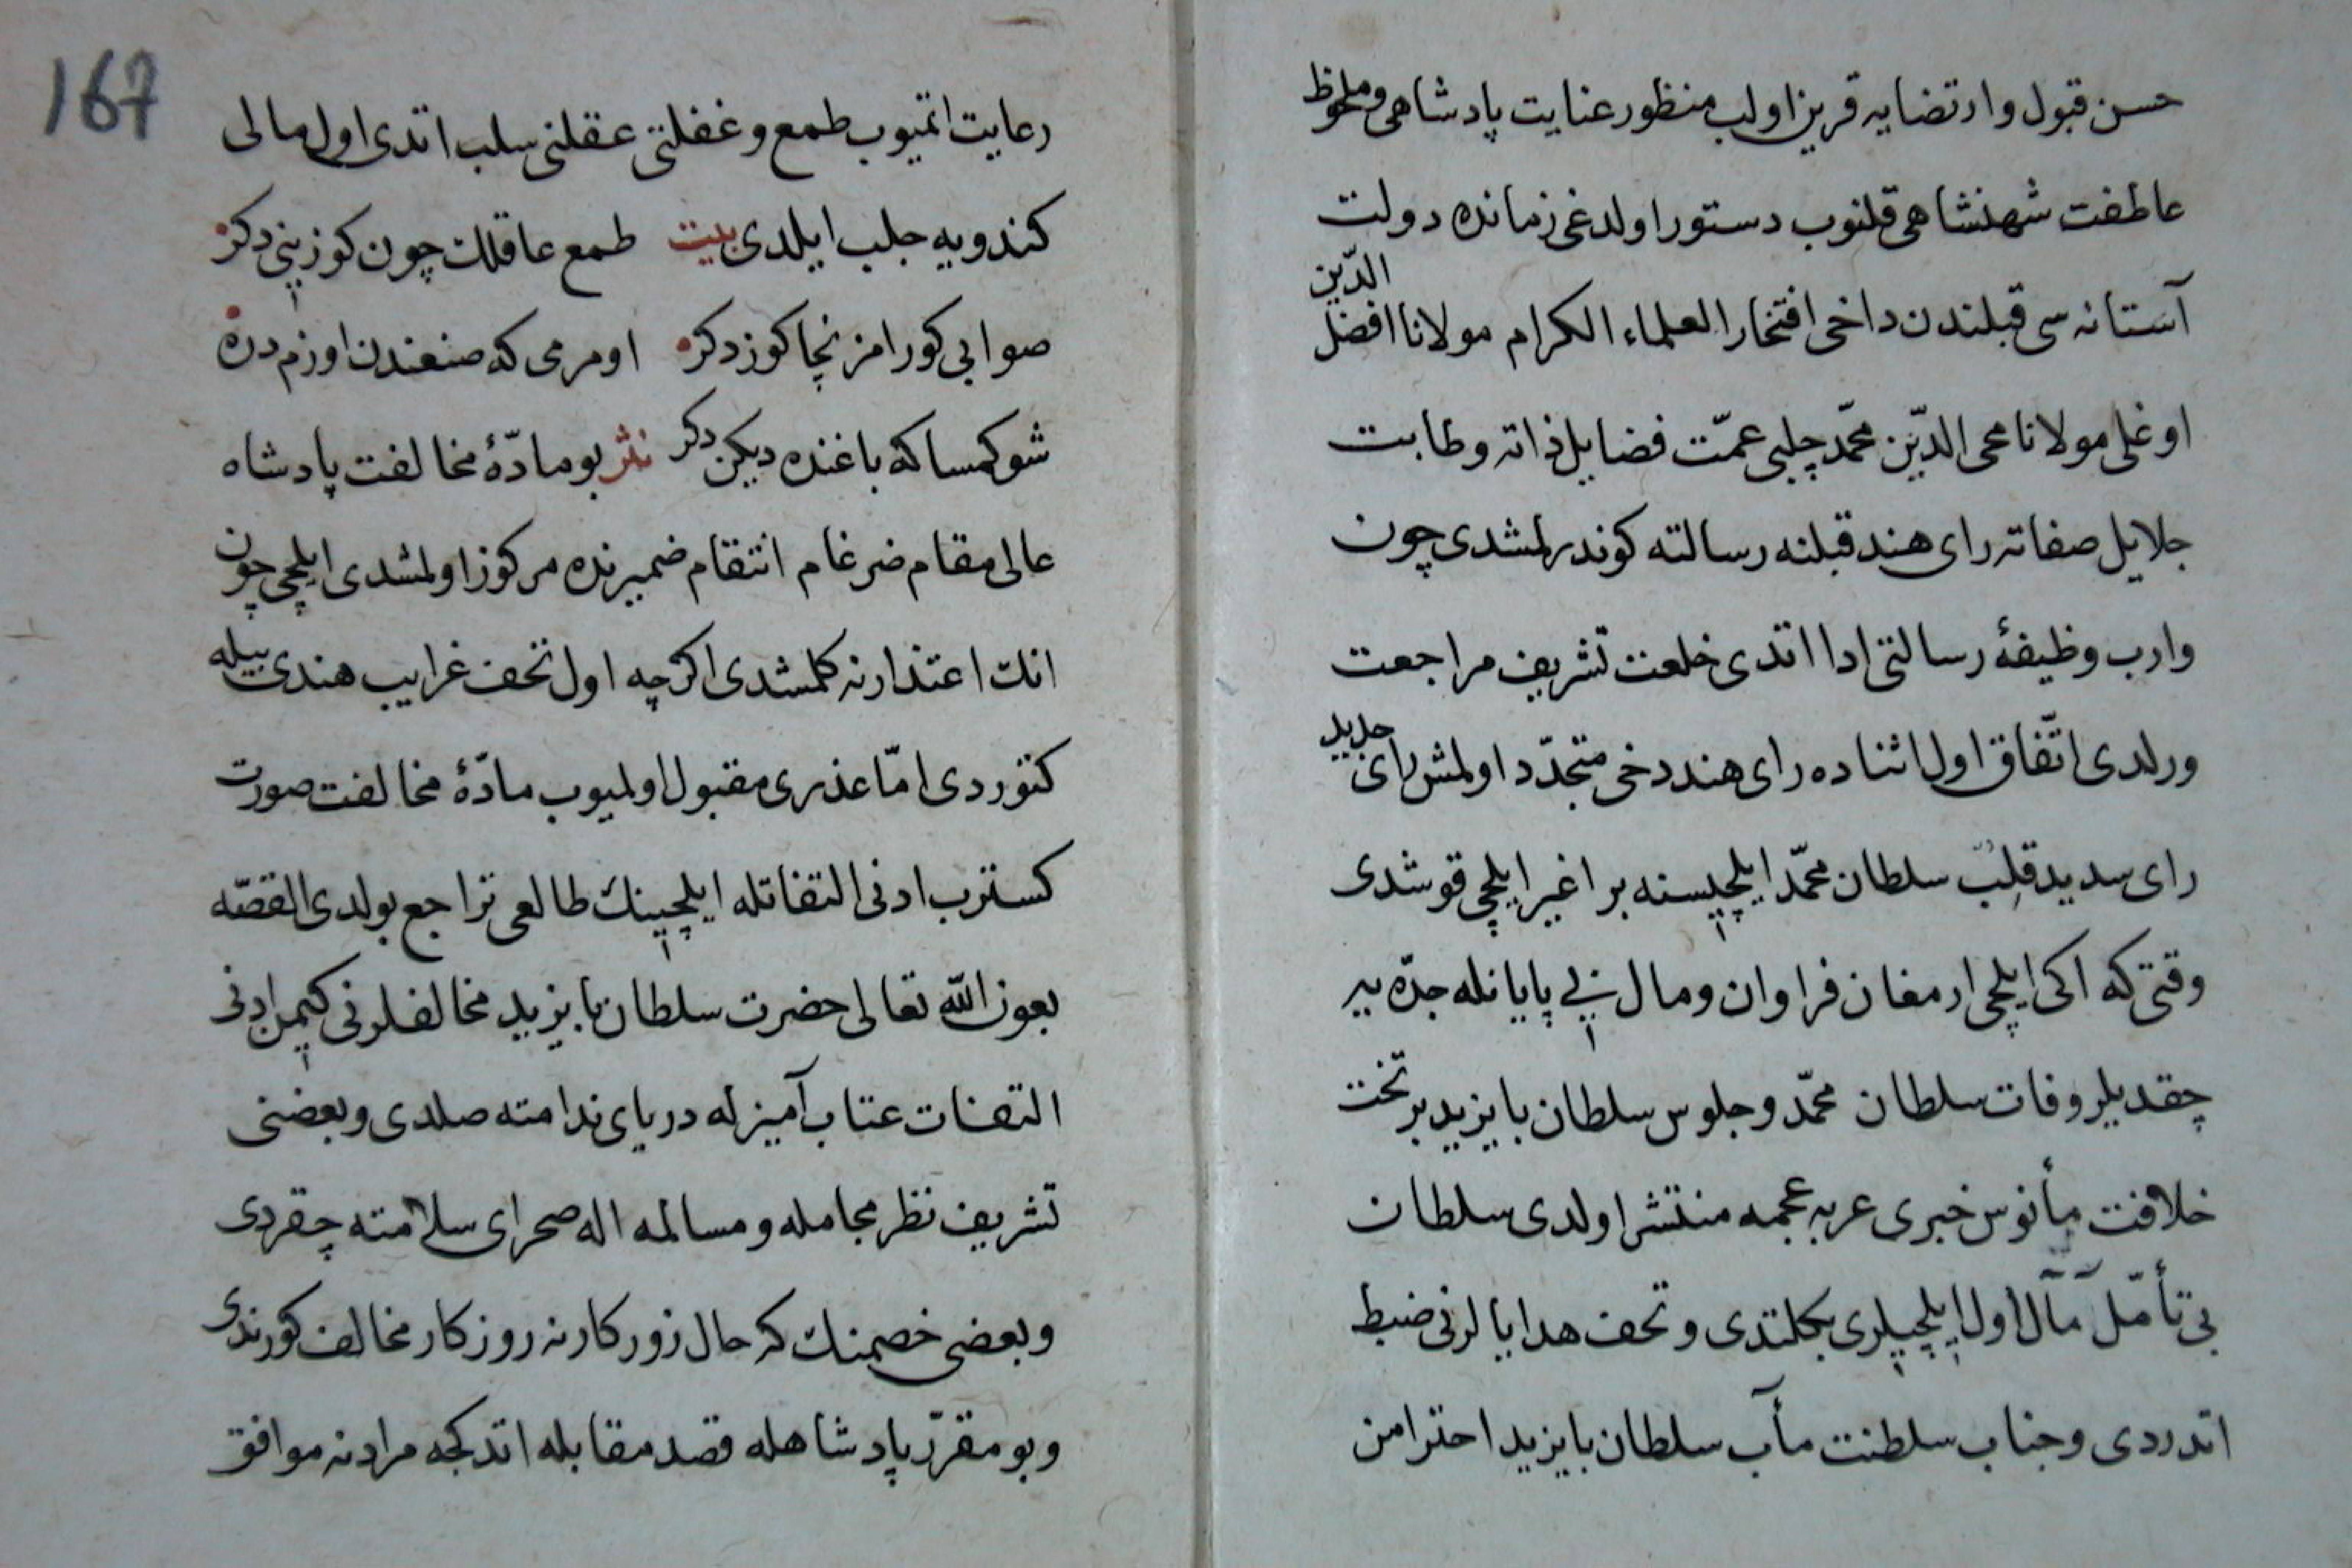 حسن قبول وارتضایه قرین اولب منظور عنایت پادشاهی وملحوظ
عاطفت شهنشاهی قلنوب دستور اولدغی زمانده دولت
آستانه سی قبلندن داخی افتخار العلماء الکرام مولانا افضل الدّین
اوغلی مولانا محی الدّین محمّد چلبی عمّت فضایل ذاته وطابت
جلایل صفاته رای هند قبلنه رسالته کوندرلمشدی چون
وارب وظیفهٔ رسالتی ادا اتدی خلعت تشریف مراجعت
ورلدی اتّفاق اول اثناده رای هند دخی متجدّد اولمش رای جدید
رای سدید قلب سلطان محمّد ایلچیسنه بر اغیر ایلچی قوشدی
وقتی که اکی ایلچی ارمغان فراوان ومال بی پایانله جدّه یه
چقدیلر وفات سلطان محمّد وجلوس سلطان بایزید بر تخت
خلافت مأنوس خبری عربه عجمه منتشر اولدی سلطان
بی تأمّل مآل اول ایلچیلری بکلتدی وتحف هدایالرنی ضبط
اتدردی وجناب سلطنت مآب سلطان بایزید احترامن
167
رعایت اتمیوب طمع وغفلتی عقلنی سلب اتدی اول مالی
کندویه جلب ایلدی بیت طمع عاقلك چون کوزینی دکر
صوابی کورامز نچا کوز دکر اومرمی که صنعندن اوزم دره
شو کمسا که باغنده دیکن دکر نثر بو مادّهٔ مخالفت پادشاه
عالی مقام ضرغام انتقام ضمیرنده مرکوز اولمشدی ایلچی چون
انك اعتذارنه کلمشدی اکرچه اول تحف غرایب هندی بیله
کتوردی امّا عذری مقبول اولمیوب مادّهٔ مخالفت صورت
کسترب ادنی التفاتله ایلچینك طالعی تراجع بولدی القصّه
بعون الله تعالی حضرت سلطان بایزید مخالفلرنی کیمن ادنی
التفات عتاب آمیزله دریای ندامته صلدی وبعضنی
تشریف نظر مجامله ومسالمه اله صحرای سلامته چقردی
وبعضی خصمنك که حال زور کارنه روزکار مخالف کورندی
وبو مقرّر پادشاهله قصد مقابله اتدکجه مرادنه موافق